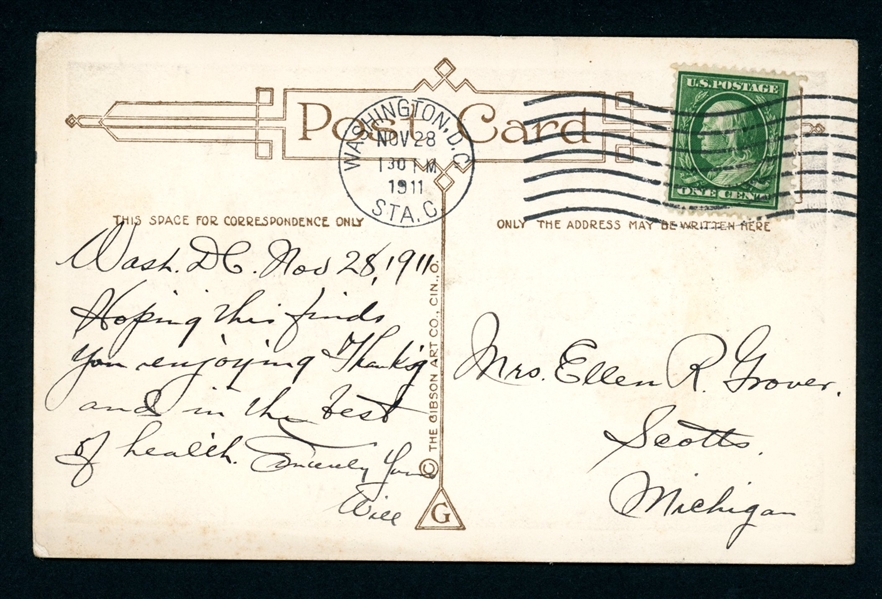 Post Card
WASHINGTON, D.C.
NOV 28
1 30 PM
1911
STA. C.
U.S. POSTAGE
ONE CENT
THIS SPACE FOR CORRESPONDENCE ONLY
ONLY THE ADDRESS MAY BE WRITTEN HERE
Wash. D.C. Nov 28, 1911
Hoping this finds
you enjoying Thanksg
and in the best
of health. Sincerely Yours
Will
© THE GIBSON ART CO., CIN., O.
G
Mrs. Ellen R. Grover.
Scotts.
Michigan